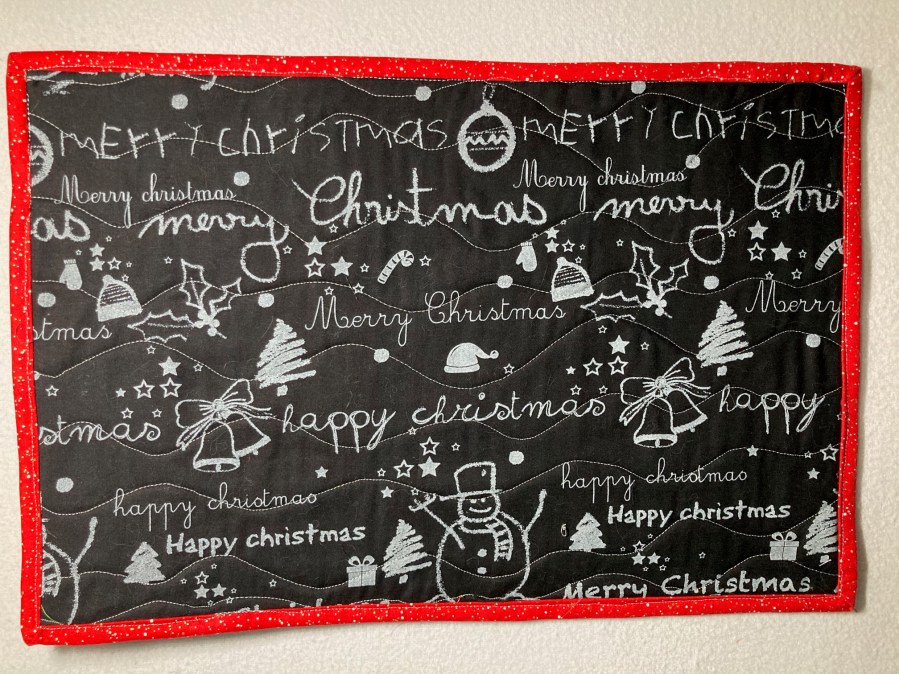 mErry christmas mErry christmas
Merry christmas Merry christmas
as merry Christmas merry Chris
stmas Merry Christmas Merry
stmas happy christmas happy
happy christmas happy christmas
Happy christmas Happy christmas
Merry Christmas